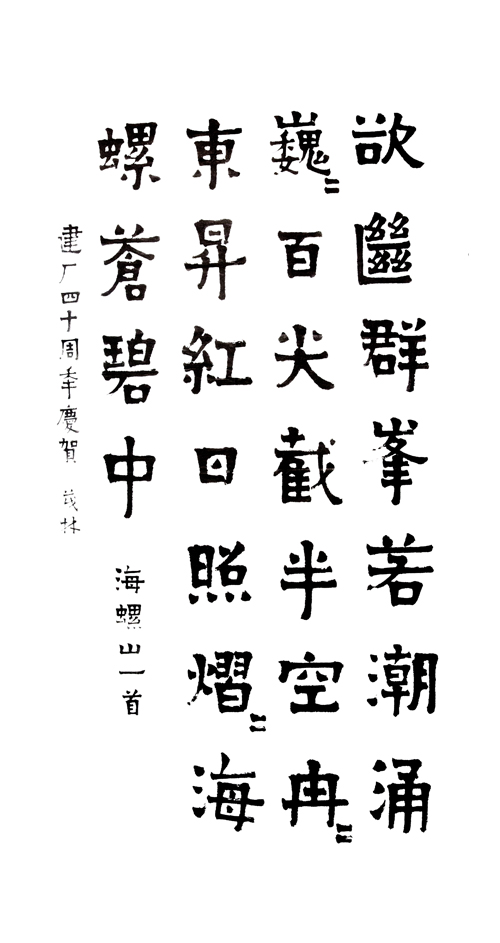 欲群峯若潮涌
巍〻百尖截半空冉〻
東昇紅日照熠〻海
螺蒼碧中 海螺山一首
建厂四十周年慶賀 茂林